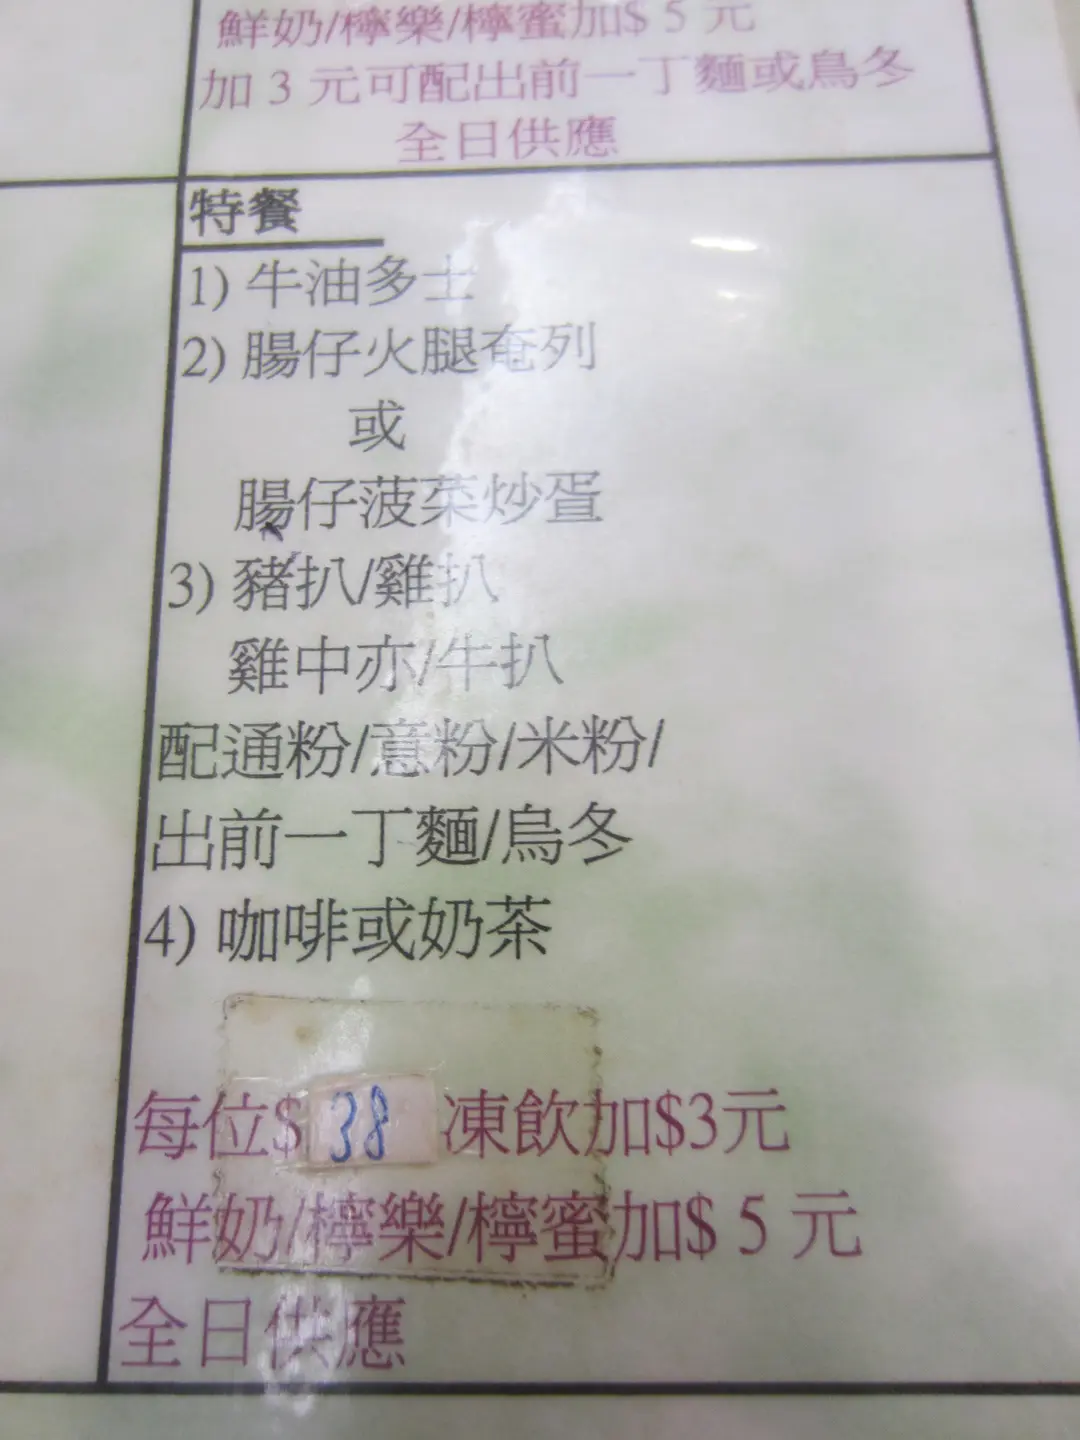 鮮奶/檸樂/檸蜜加$ 5 元
加 3 元可配出前一丁麵或烏冬
全日供應
特餐
1) 牛油多士
2) 腸仔火腿奄列
或
腸仔菠菜炒蛋
3) 豬扒/雞扒
雞中亦/牛扒
配通粉/意粉/米粉/
出前一丁麵/烏冬
4) 咖啡或奶茶
每位$ 38 凍飲加$3元
鮮奶/檸樂/檸蜜加$ 5 元
全日供應